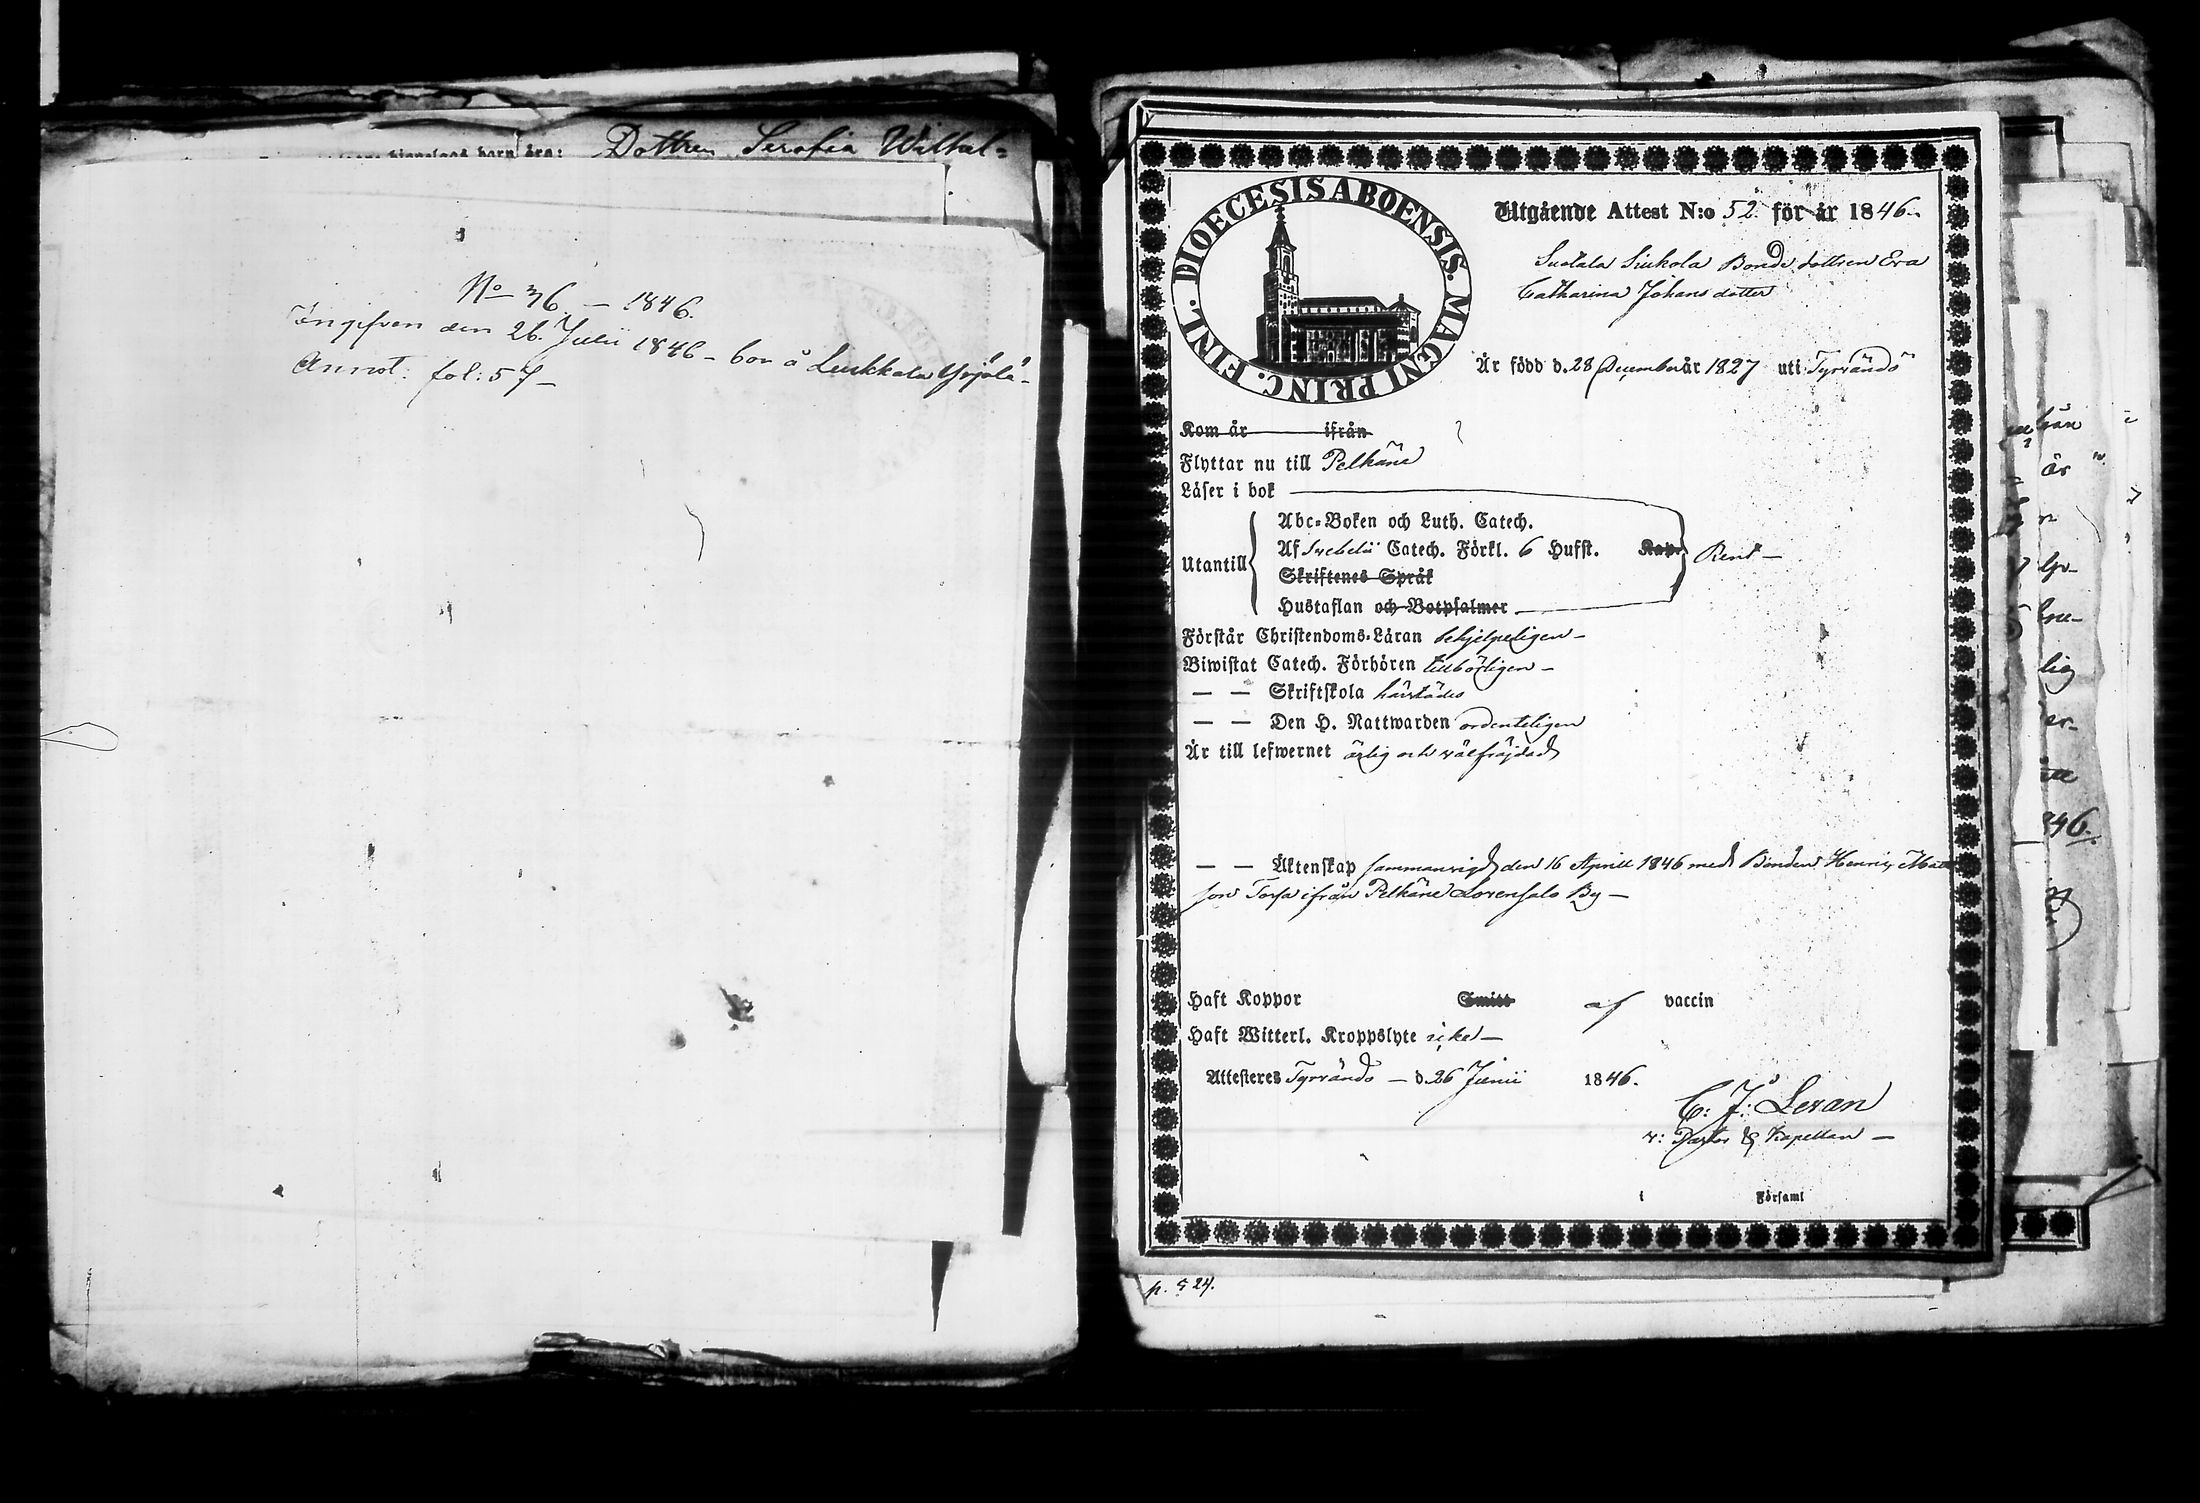 Dottren Serafia Wilhel=
No 36 – 1846.
Ingifven den 26. Julii 1846 – bor å Luikkala Yrjölä –
Annot. fol: 57 –
DIOECESIS ABOENSIS. MAGNI PRINC. FINL.
Utgående Attest N:o 52. för år 1846.
Suotala Siukola Bonde dottren Eva
Catharina Johans dotter
Är född d. 28 December år 1827 uti Tyrvändö
Kom år ifrån
Flyttar nu till Pelkäne
Läser i bok
Utantill
Abc-Boken och Luth. Catech.
Af Svebelii Catech. Förkl. 6 Hufst. Kap.
Rent –
Skriftenes Språk
Hustaflan och Botpsalmer
Förstår Christendoms-Läran behjelpeligen –
Biwistat Catech. Förhören tillbörligen –
— — Skriftskola härstädes
— — Den H. Nattwarden ordenteligen
Är till lefwernet ärlig och välfräjdad
— — Äktenskap sammanvigd den 16 Aprill 1846 med Bonden Henric Matts
son Torfa ifrån Pelkäne Lovensalo By –
Haft Koppor Smitt af vaccin
Haft Witterl. Kroppslyte icke –
Attesteres Tyrvändö – d. 26 Junii 1846.
C: J: Levan
v: Pastor & Kapellan –
i Församl
p. 524.